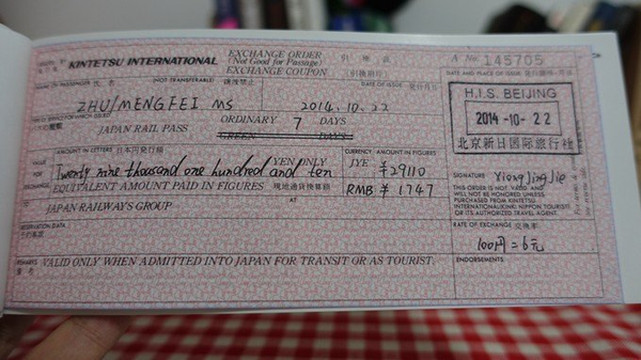 KINTETSU INTERNATIONAL
EXCHANGE ORDER
(Not Good for Passage)
EXCHANGE COUPON
A No 145705
(NOT TRANSFERABLE)
DATE OF ISSUE
DATE AND PLACE OF ISSUE
ZHU/MENGFEI MS
2014.10.22
H.I.S. BEIJING
2014-10-22
北京新日国际旅行社
JAPAN RAIL PASS
ORDINARY 7 DAYS
GREEN DAYS
AMOUNT IN LETTERS
CURRENCY AMOUNT IN FIGURES
VALUE
FOR
EXCHANGE
Twenty nine thousand one hundred and ten
YEN ONLY
JYE ¥29110
EQUIVALENT AMOUNT PAID IN FIGURES
RMB: ¥ 1747
SIGNATURE XiongJingJie
TO JAPAN RAILWAYS GROUP
AT
THIS ORDER IS NOT VALID AND
WILL NOT BE HONORED UNLESS
PURCHASED FROM KINTETSU
OR ITS AUTHORIZED TRAVEL AGENT.
RESERVATION DATA
RATE OF EXCHANGE
100円=6元
REMARKS VALID ONLY WHEN ADMITTED INTO JAPAN FOR TRANSIT OR AS TOURIST.
ENDORSEMENTS